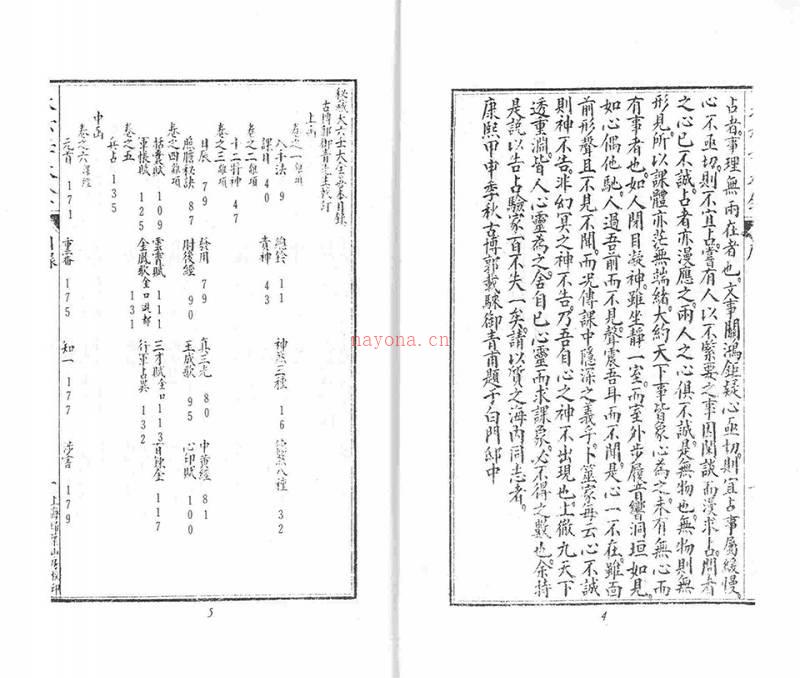 占者。事理無兩在者也。文事關鴻鉅疑心亟切。則宜占。事屬緩慢。
心不亟切。則不宜占。嘗有人以不緊要之事因閑談而漫求占。問者
之心已不誠。占者亦漫應之。兩人之心俱不誠。是無物也。無物則無
形見。所以課體亦茫無端緒。大約天下事皆象心為之。未有無心而
有事者也。如人閉目凝神。雖坐靜一室。而室外步履音響。洞垣如見。
如心偶他馳。人過吾前而不見。聲震吾耳而不聞。是心一不在。雖面
前形聲。且不見不聞。而況傳課中隱深之義乎。卜筮家每云。心不誠
則神不告。非幽冥之神不告。乃吾自心之神不出現也。上徹九天。下
透重淵。皆人心靈為之。舍自已心靈而求課象。必不得之數也。余特
是說以告占驗家。百不失一矣。請以質之海內同志者。
康熙甲申季秋古博郭載騋御青甫題于白門邸中
4
秘藏大六壬大全善本目錄
古博郭御青先生較訂
上函
卷之一雜項
入手法 9 總鈐 11 神煞三種 16 總煞八種 32
課目 40 貴神 43
卷之二雜項
十二將神 47
卷之三雜項
日辰 79 發用 79 真三光 80 中黃經 81
照膽秘訣 87 肘後經 90 玉成歌 95 心印賦 100
卷之四雜項
括囊賦 109 雲霄賦 111 三才賦全 113 百鍊金 117
軍帳賦 125 金鳳歌全 131 行軍占異 132
卷之五
兵占 135
中函
卷之六課經
元首 171 重審 175 知一 177 涉害 179
5
nayona.cn